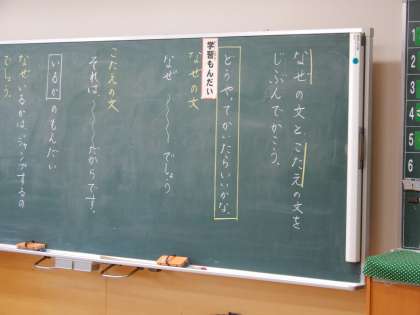 なぜの文と、こたえの文を
じぶんでかこう。
学習もんだい
どうやってかいたらいいかな。
なぜの文
なぜ 〜〜〜 でしょう
こたえの文
それは 〜〜〜 だからです。
いるか のもんだい
なぜいるかは、ジャンプするの
でしょう。
1
2
3
4
5